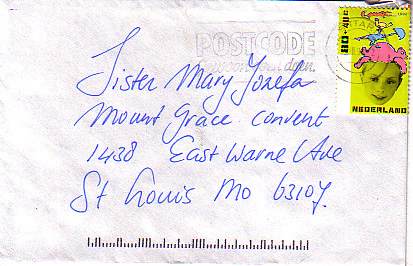 POSTCODE
gewoon even doen.
80+40c
NEDERLAND
Sister Mary Jozefa
Mount Grace convent
1438 East Warne Ave
St Louis Mo 63107.